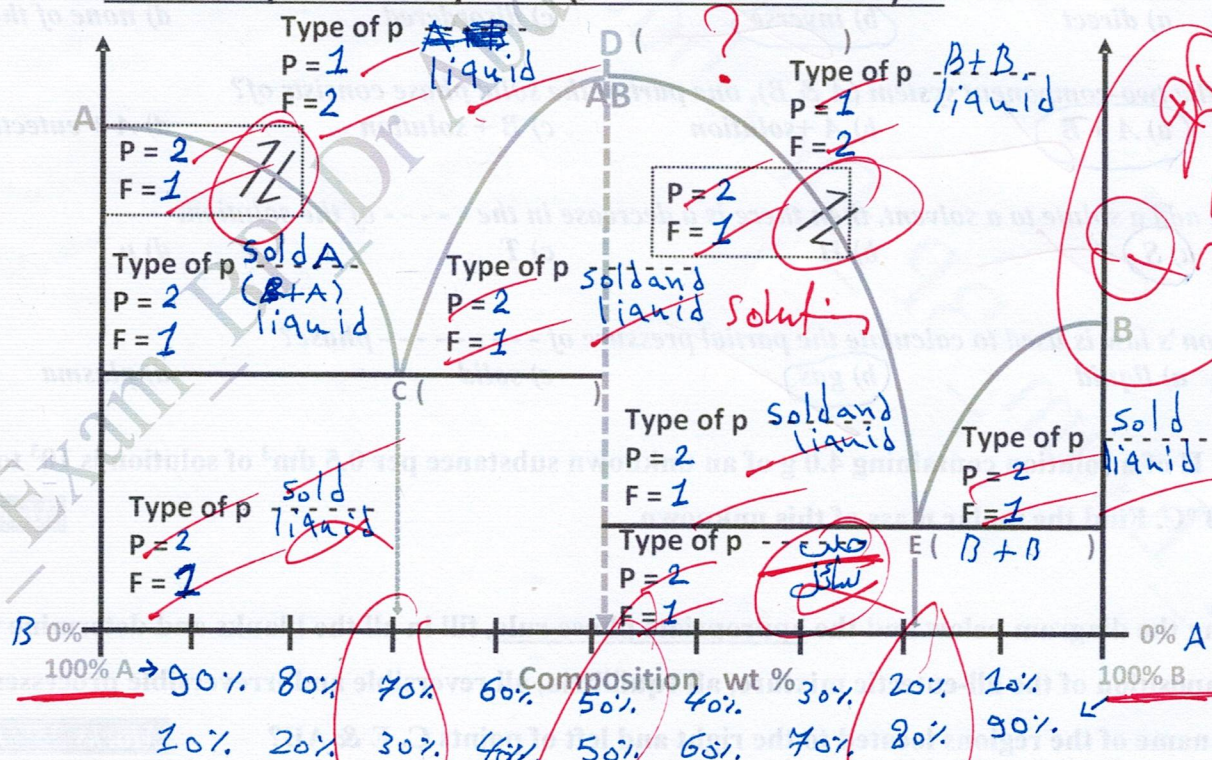 Type of p
liquid
P = 1
F = 2
D ( ? )
AB
Type of p B+B
liquid
P = 1
F = 2
A
P = 2
F = 1
1/2
P = 2
F = 1
Type of p Sold A
(B+A)
liquid
P = 2
F = 1
Type of p soldand
liquid
P = 2
F = 1
Solution
B
C ( )
Type of p Soldand
liquid
P = 2
F = 1
Type of p Sold
liquid
P = 2
F = 1
Type of p Sold
liquid
P = 2
F = 1
Type of p
سائل
P = 2
F = 1
E ( B+B )
B 0%
0% A
100% A → 90% 80% 70% 60% 50% 40% 30% 20% 10% 100% B
Composition wt %
10% 20% 30% 40% 50% 60% 70% 80% 90%
Exam_BPDr